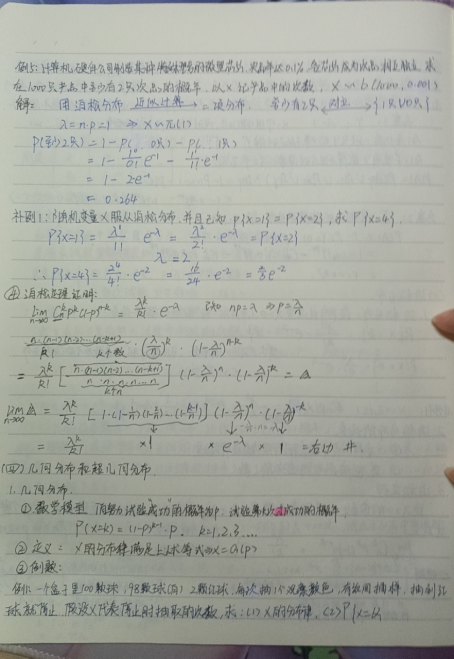 例5: 计算机硬件公司制造某种特殊型号的微型芯片, 次品率达0.1%, 各芯片成为次品相互独立, 求
在1000只产品中至少有2只次品的概率, 以X记产品中的次数, X~b(1000, 0.001)
解: 用泊松分布 近似计算→ 二项分布. 至少有2只 ←对立→ {1只U0只}
λ=n·p=1 ⇒ X~π(1)
P(至少2只)=1-P( 0只)-P( 1只)
= 1 - 1⁰/0! e⁻¹ - 1¹/1! e⁻¹
= 1 - 2·e⁻¹
≈ 0.264
补例1: 随机变量X服从泊松分布, 并且已知 P{X=1}=P{X=2}, 求P{X=4}.
P{X=1} = λ¹/1! · e^-λ = λ²/2! · e^-λ = P{X=2}
λ=2
∴ P{X=4} = 2⁴/4! · e⁻² = 16/24 · e⁻² = 2/3 e⁻²
④ 泊松定理证明:
lim n→∞ Cₙᵏ pᵏ (1-p)ⁿ⁻ᵏ = λᵏ/k! · e^-λ 已知 np=λ ⇒ p=λ/n
n·(n-1)(n-2)…(n-k+1)/k! k个数 · (λ/n)ᵏ · (1-λ/n)ⁿ⁻ᵏ
= λᵏ/k! [n·(n-1)(n-2)…(n-k+1)/n·n·n·n…n] (1-λ/n)ⁿ · (1-λ/n)⁻ᵏ = △
lim n→∞ △ = λᵏ/k! [1·(1-1/n)(1-2/n)…(1-(k-1)/n)] (1-λ/n)ⁿ · (1-λ/n)⁻ᵏ
= λᵏ/k! ×1 × e^-λ × 1 = 右边 #.
(四) 几何分布和超几何分布
1. 几何分布.
① 数学模型 试验成功的概率为p, 试验 次才成功的概率.
P(X=k) = (1-p)ᵏ⁻¹·p. k=1,2,3….
② 定义: X的分布律满足上述等式⇒X~G(p)
③ 例题:
例1: 一个盒子里100颗球, 98颗球(白) 2颗红球, 每次抽1个观察颜色, 有放回抽样, 抽到红
球就停止, 假设X代表停止时抽取的次数, 求: (1) X的分布律, (2) P{X=